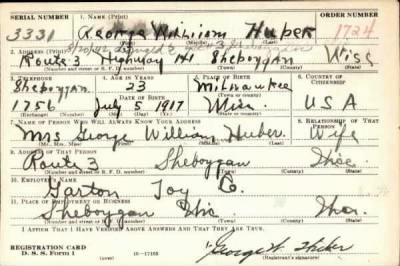 SERIAL NUMBER 1. NAME (Print) ORDER NUMBER
3331 George William Huber 1724
(First) (Middle) (Last)
2. ADDRESS (Print)
Route 3 Highway 141 Sheboygan Wisc
(Number and street or R. F. D. number) (Town) (County) (State)
3. TELEPHONE 4. AGE IN YEARS 5. PLACE OF BIRTH 6. COUNTRY OF CITIZENSHIP
Sheboygan 23 Milwaukee
(Exchange) DATE OF BIRTH (Town or county)
1756 July 5 1917 Wisc. U S A
(Number) (Mo.) (Day) (Yr.) (State or country)
7. NAME OF PERSON WHO WILL ALWAYS KNOW YOUR ADDRESS 8. RELATIONSHIP OF THAT PERSON
Mrs George William Huber Wife
(Mr., Mrs., Miss) (First) (Middle) (Last)
9. ADDRESS OF THAT PERSON
Route 3 Sheboygan Wisc.
(Number and street or R. F. D. number) (Town) (County) (State)
10. EMPLOYER'S NAME
Garton Toy Co.
11. PLACE OF EMPLOYMENT OR BUSINESS
Sheboygan Wis.
(Number and street or R. F. D. number) (Town) (County) (State)
I AFFIRM THAT I HAVE VERIFIED ABOVE ANSWERS AND THAT THEY ARE TRUE.
REGISTRATION CARD
D. S. S. Form 1 George W. Huber
(Registrant's signature)